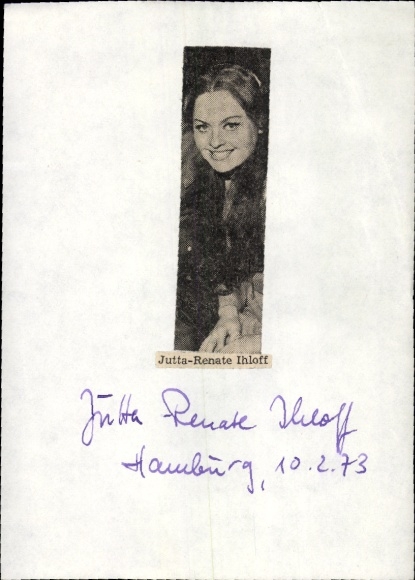 Jutta-Renate Ihloff
Jutta Renate Ihloff
Hamburg, 10.2.73